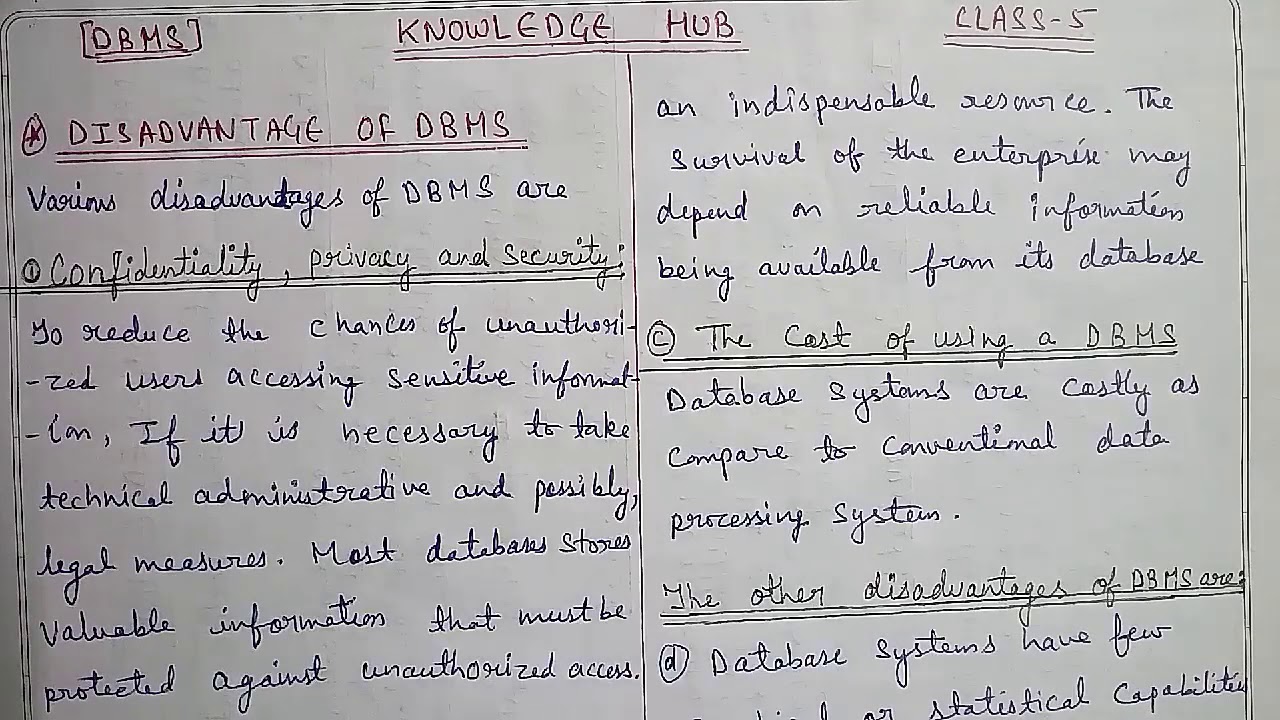 [DBMS]
KNOWLEDGE HUB
CLASS-5
DISADVANTAGE OF DBMS
Various disadvantages of DBMS are
① Confidentiality, privacy and Security:
To reduce the chances of unauthori-
-zed users accessing sensitive informat-
-ion, If it is necessary to take
technical administrative and possibly,
legal measures. Most databases stores
valuable information that must be
protected against unauthorized access.
an indispensable resource. The
survival of the enterprise may
depend on reliable information
being available from its database
Ⓒ The Cost of using a DBMS
Database Systems are costly as
compare to conventional data
processing System.
The other disadvantages of DBMS are:
ⓓ Database Systems have few
or statistical Capabilities